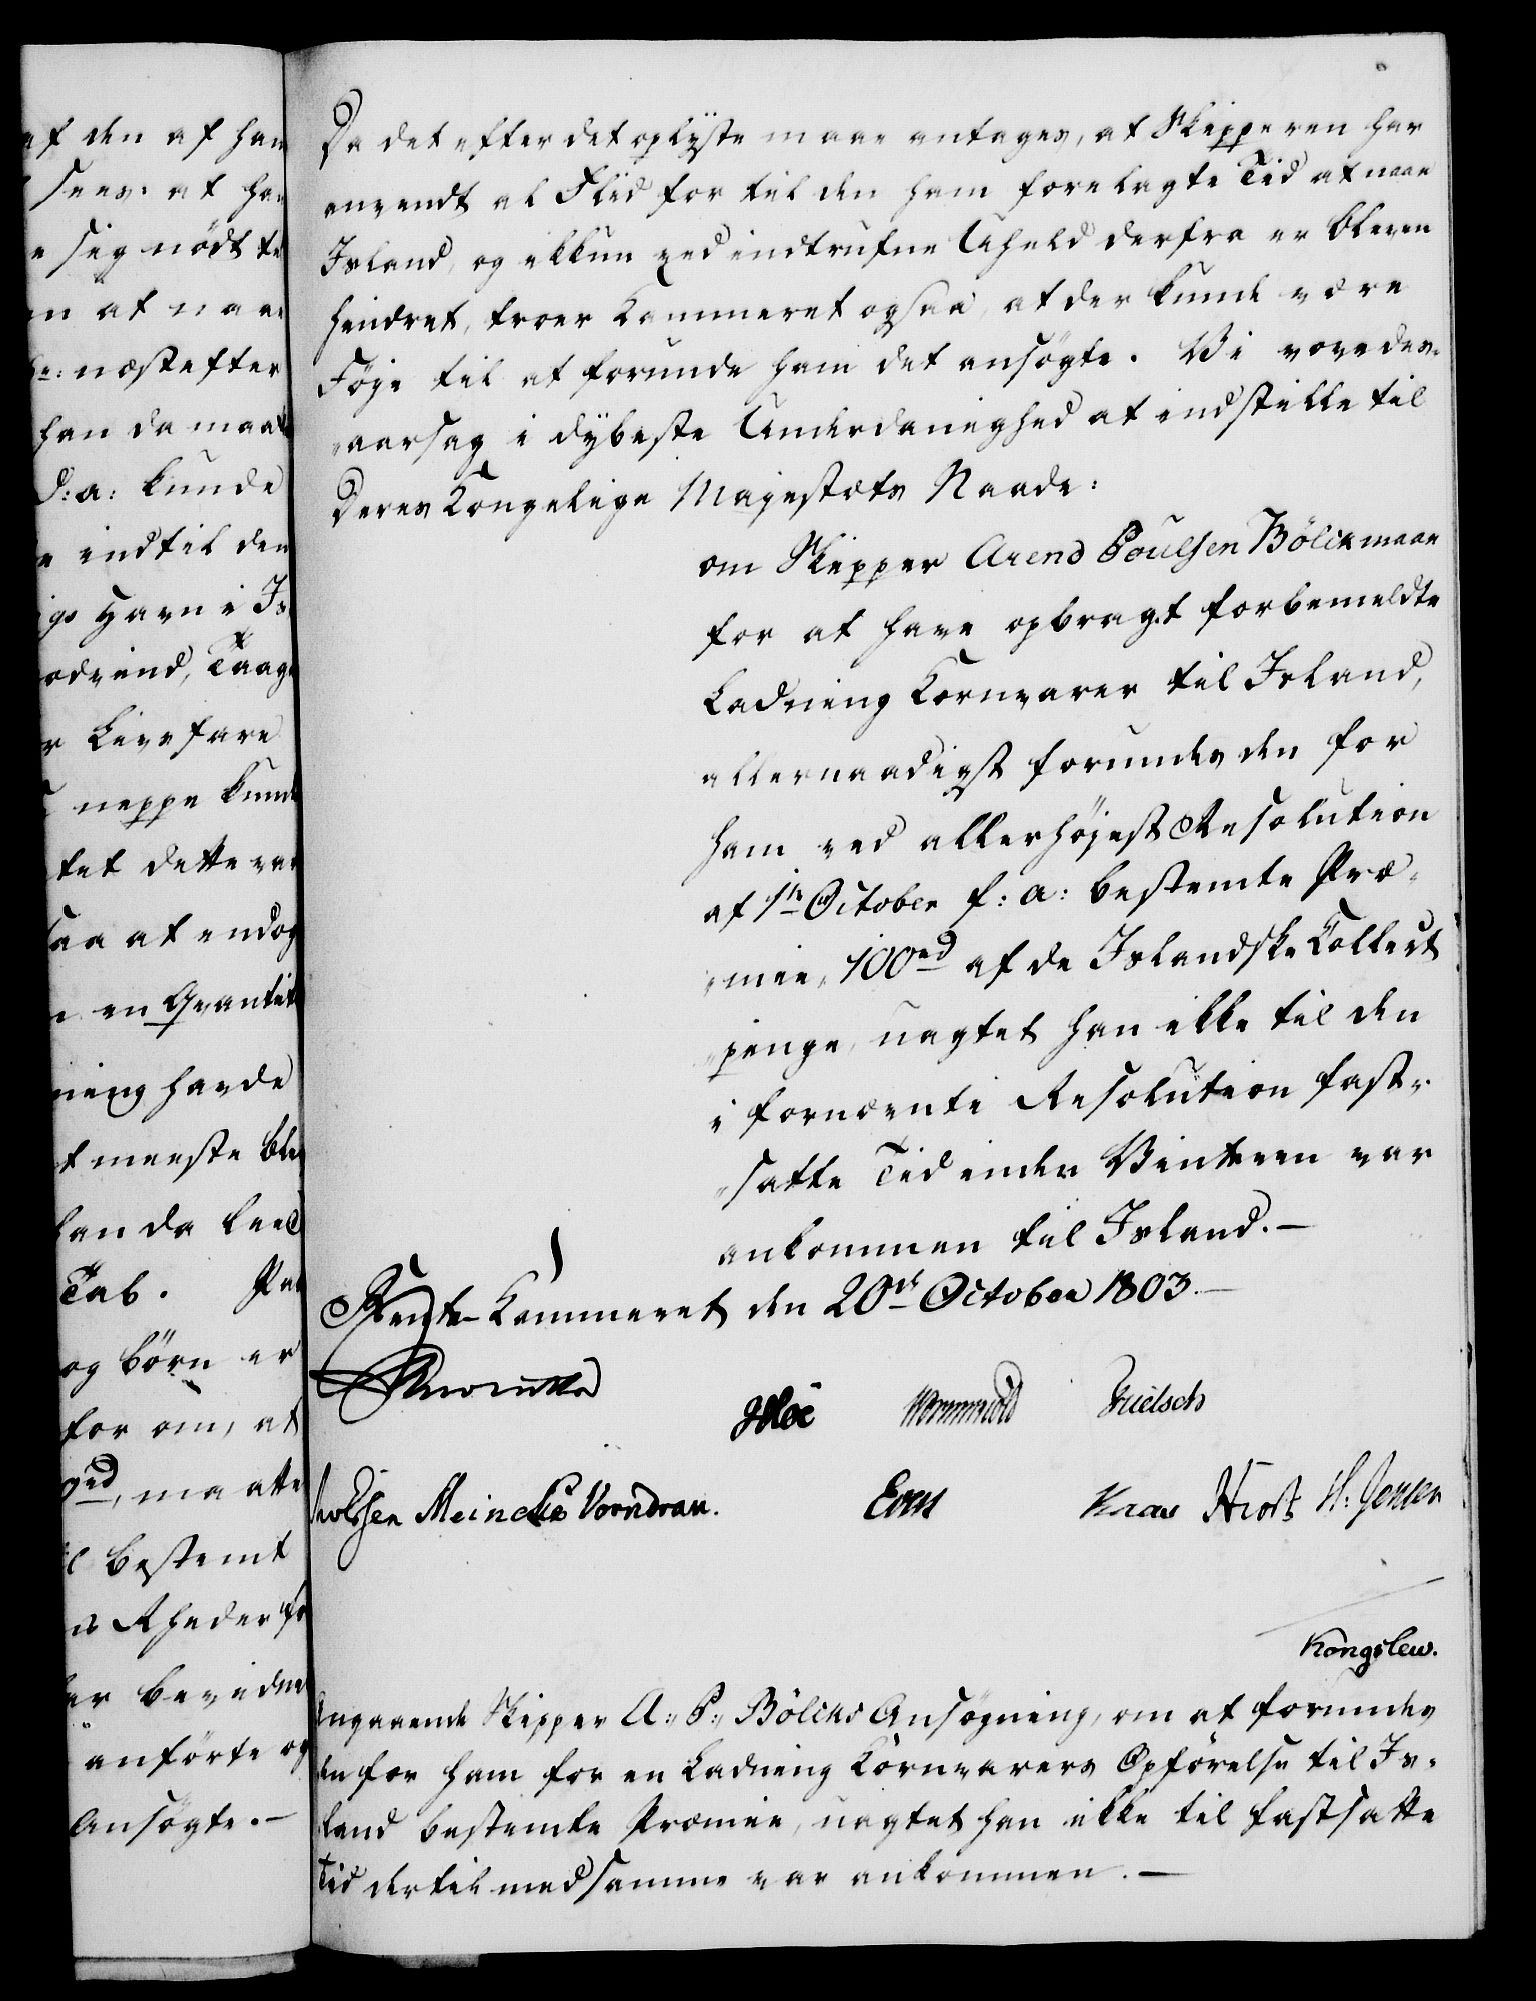 af den af ham
sees: at han
sig nödt
at naae
næst efter
han da maatte
d: a: kunde
indtil den
Havn i Is
Taage
Livsfare
neppe kunde
tet dette var
saa at endog
en Qvantite
ning havde
meeste ble
han da lee
Tab.
og börn er
for om, at
maatte
bestemt
Rheder
bevidne
anförte og
Ansögte.—
Da det efter det oplyste maae antages, at Skipperen har
anvendt al Flid for til den ham forelagte Tid at naae
Island, og ikkun ved indtrufne Uheld derfra er bleven
hindret, troer Kammeret ogsaa, at der kunde være
Föje til at forunde ham det ansögte. Vi vove des-
aarsag i dybeste Underdanighed at indstille til
Deres Kongelige Majestæts Naade:
om Skipper Arend Poulsen Bölck maae
for at have opbragt forbemeldte
Ladning Kornvarer til Island,
allernaadigst forundes den for
ham ved allerhöjest Resolution
af 1te October f: a: bestemte Præ-
mie, 100rd af de Islandske Collect
penge, uagtet han ikke til den
i fornævnte Resolution fast-
satte Tid inden Vinteren var
ankommen til Island.—
Rente-Kammeret den 20de October 1803.—
Reventlow
Hoë Wormskiold Trielsch
Meincke Vorndran. Evers Knae Hiort H: Jensen
Kongslew.
Angaaende Skipper A: P: Bölcks Ansögning, om at forundes
den for ham for en Ladning Kornvarers Opförelse til Is-
land bestemte Præmie, uagtet han ikke til fastsatte
Tid dertil med samme var ankommen.—